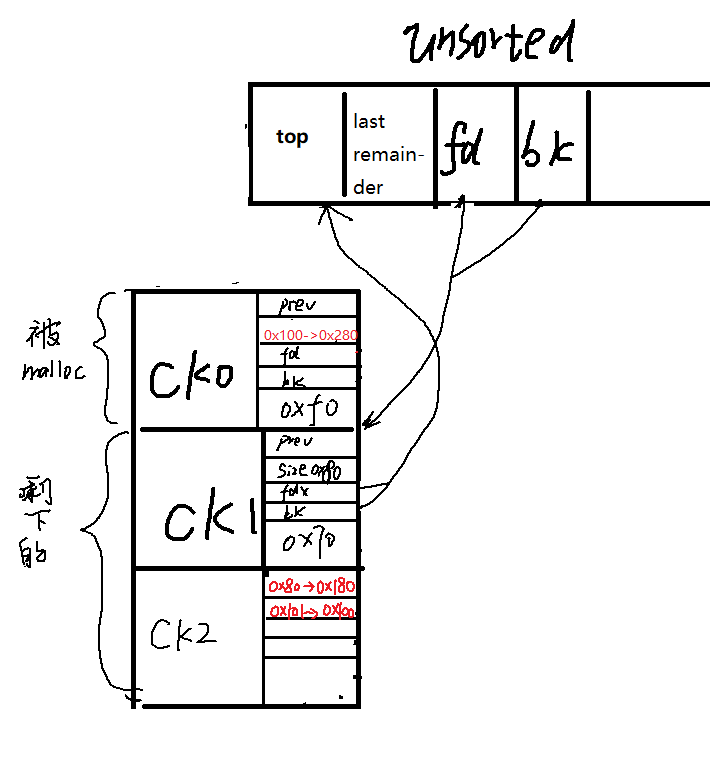 unsorted
top
last
remain-
der
fd
bk
被
malloc
ck0
prev
0x100->0x280
fd
bk
0xf0
剩
下
的
ck1
prev
size 0x80
fdx
bk
0x70
ck2
0x80→0x180
0x101→0x100